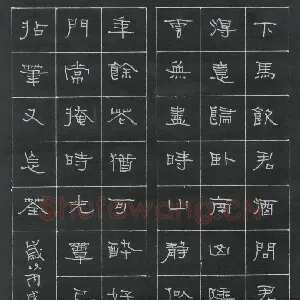 下馬飲君酒問君
得意歸卧南山陲
雲無盡時山靜似
年餘花猶可醉好
門常掩時光簟已
拈筆又忘筌歲次丙